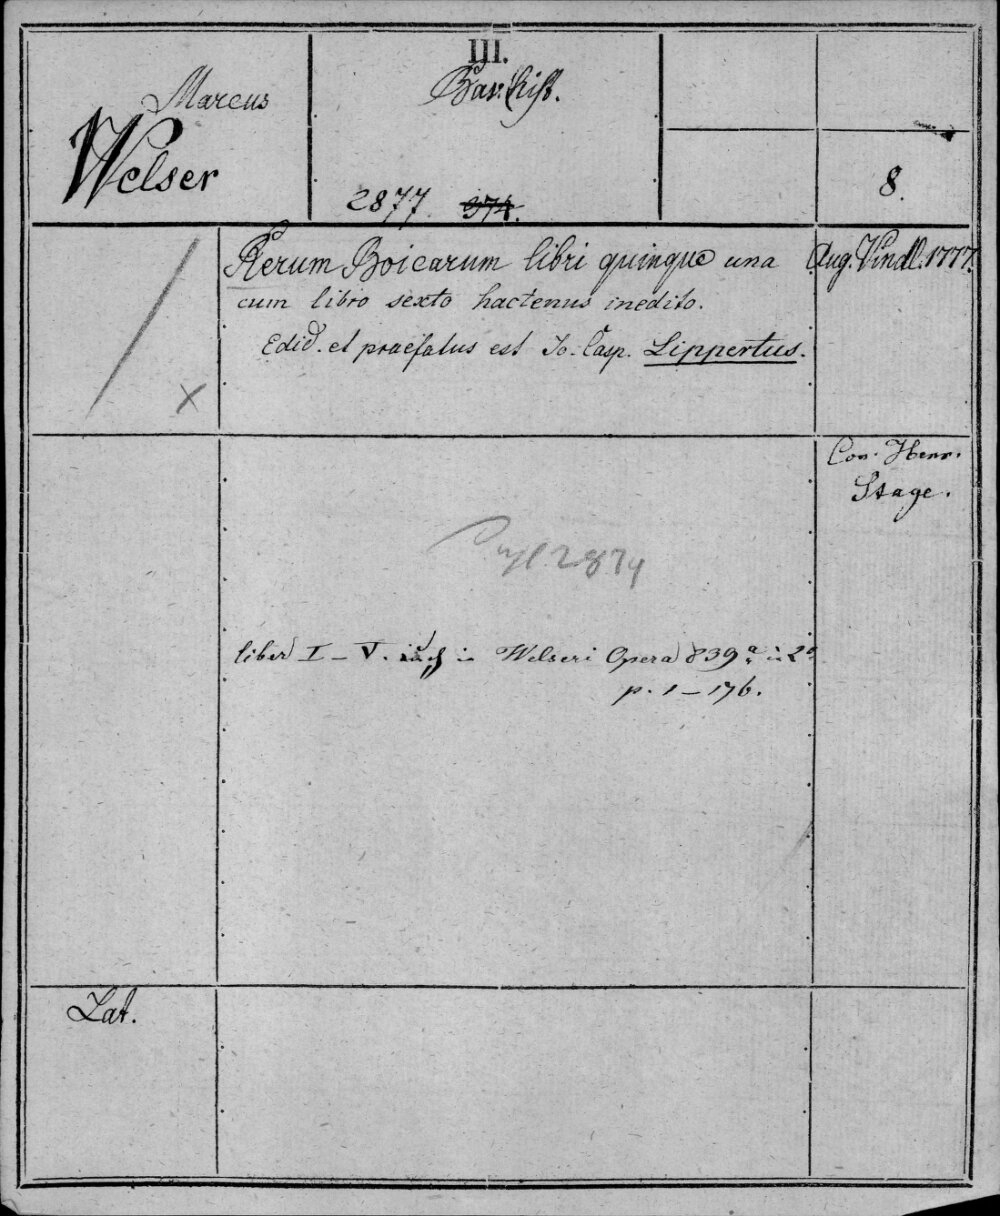 III.
Marcus
Welser
Bav. Hist.
2877. 374.
8.
Rerum Boicarum libri quinque una
cum libro sexto hactenus inedito.
Edid. et praefatus est Jo. Casp. Lippertus.
Aug. Vindl. 1777.
x
Con. Henr.
Stage.
2874
liber I – V. auch in Welseri Opera 839 a in 2°
p. 1 – 176.
Lat.